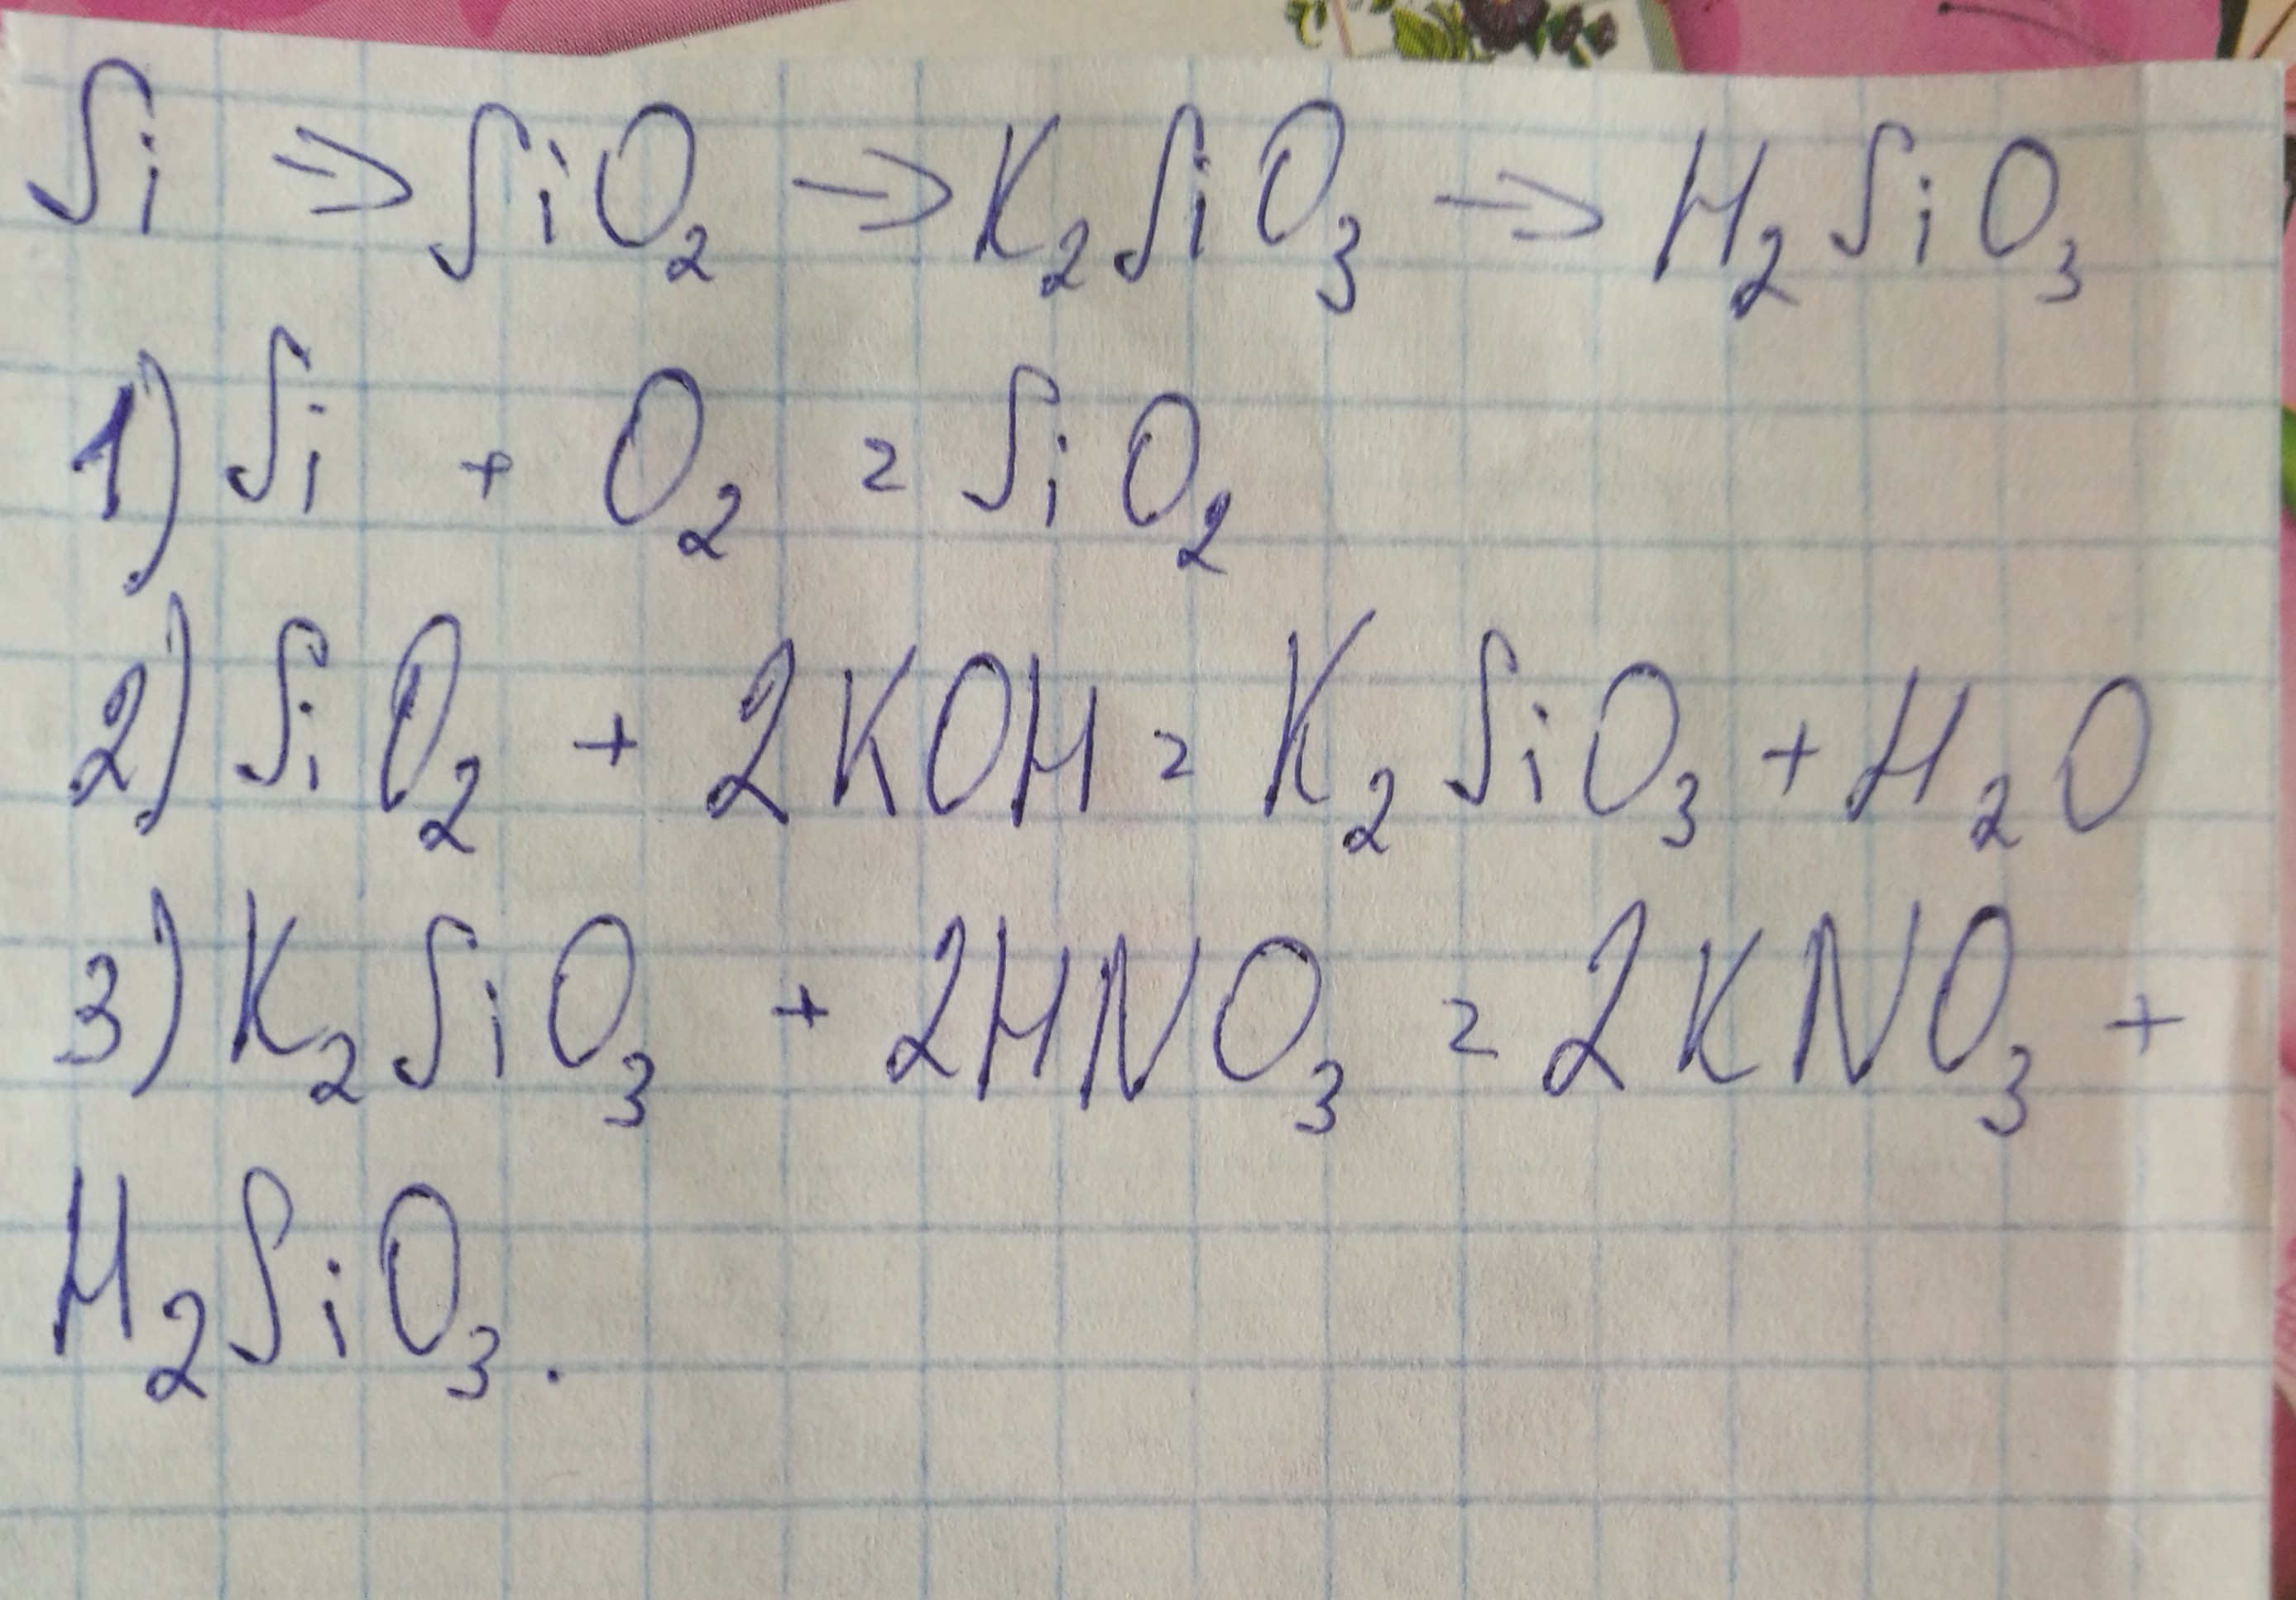 Si ⇒ SiO₂ ⇒ K₂SiO₃ ⇒ H₂SiO₃
1) Si + O₂ = SiO₂
2) SiO₂ + 2KOH = K₂SiO₃ + H₂O
3) K₂SiO₃ + 2HNO₃ = 2KNO₃ +
H₂SiO₃.